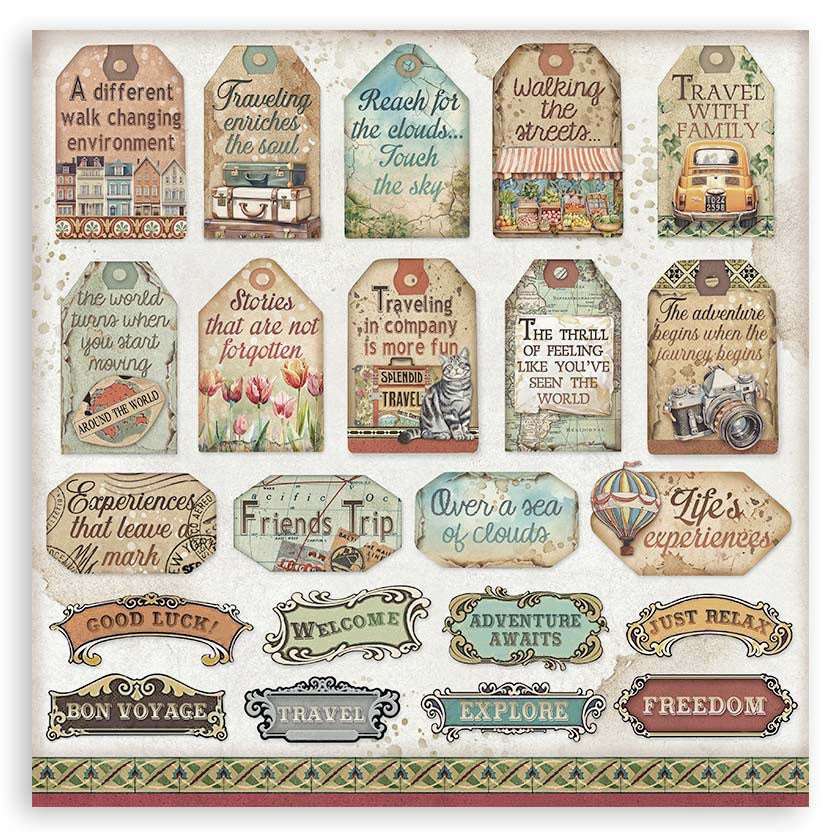 A different
walk changing
environment
Traveling
enriches
the soul
Reach for
the clouds...
Touch
the sky
Walking
the
streets...
TRAVEL
WITH
FAMILY
TO24
2598
the world
turns when
you start
moving
AROUND THE WORLD
Stories
that are not
forgotten
Traveling
in company
is more fun
SPLENDID
TRAVEL
THE THRILL
OF FEELING
LIKE YOU'VE
SEEN THE
WORLD
The adventure
begins when the
journey begins
Experiences
that leave a
mark
Pacific Oc
Friends Trip
Over a sea
of clouds
Life's
experiences
GOOD LUCK!
WELCOME
ADVENTURE
AWAITS
JUST RELAX
BON VOYAGE
TRAVEL
EXPLORE
FREEDOM